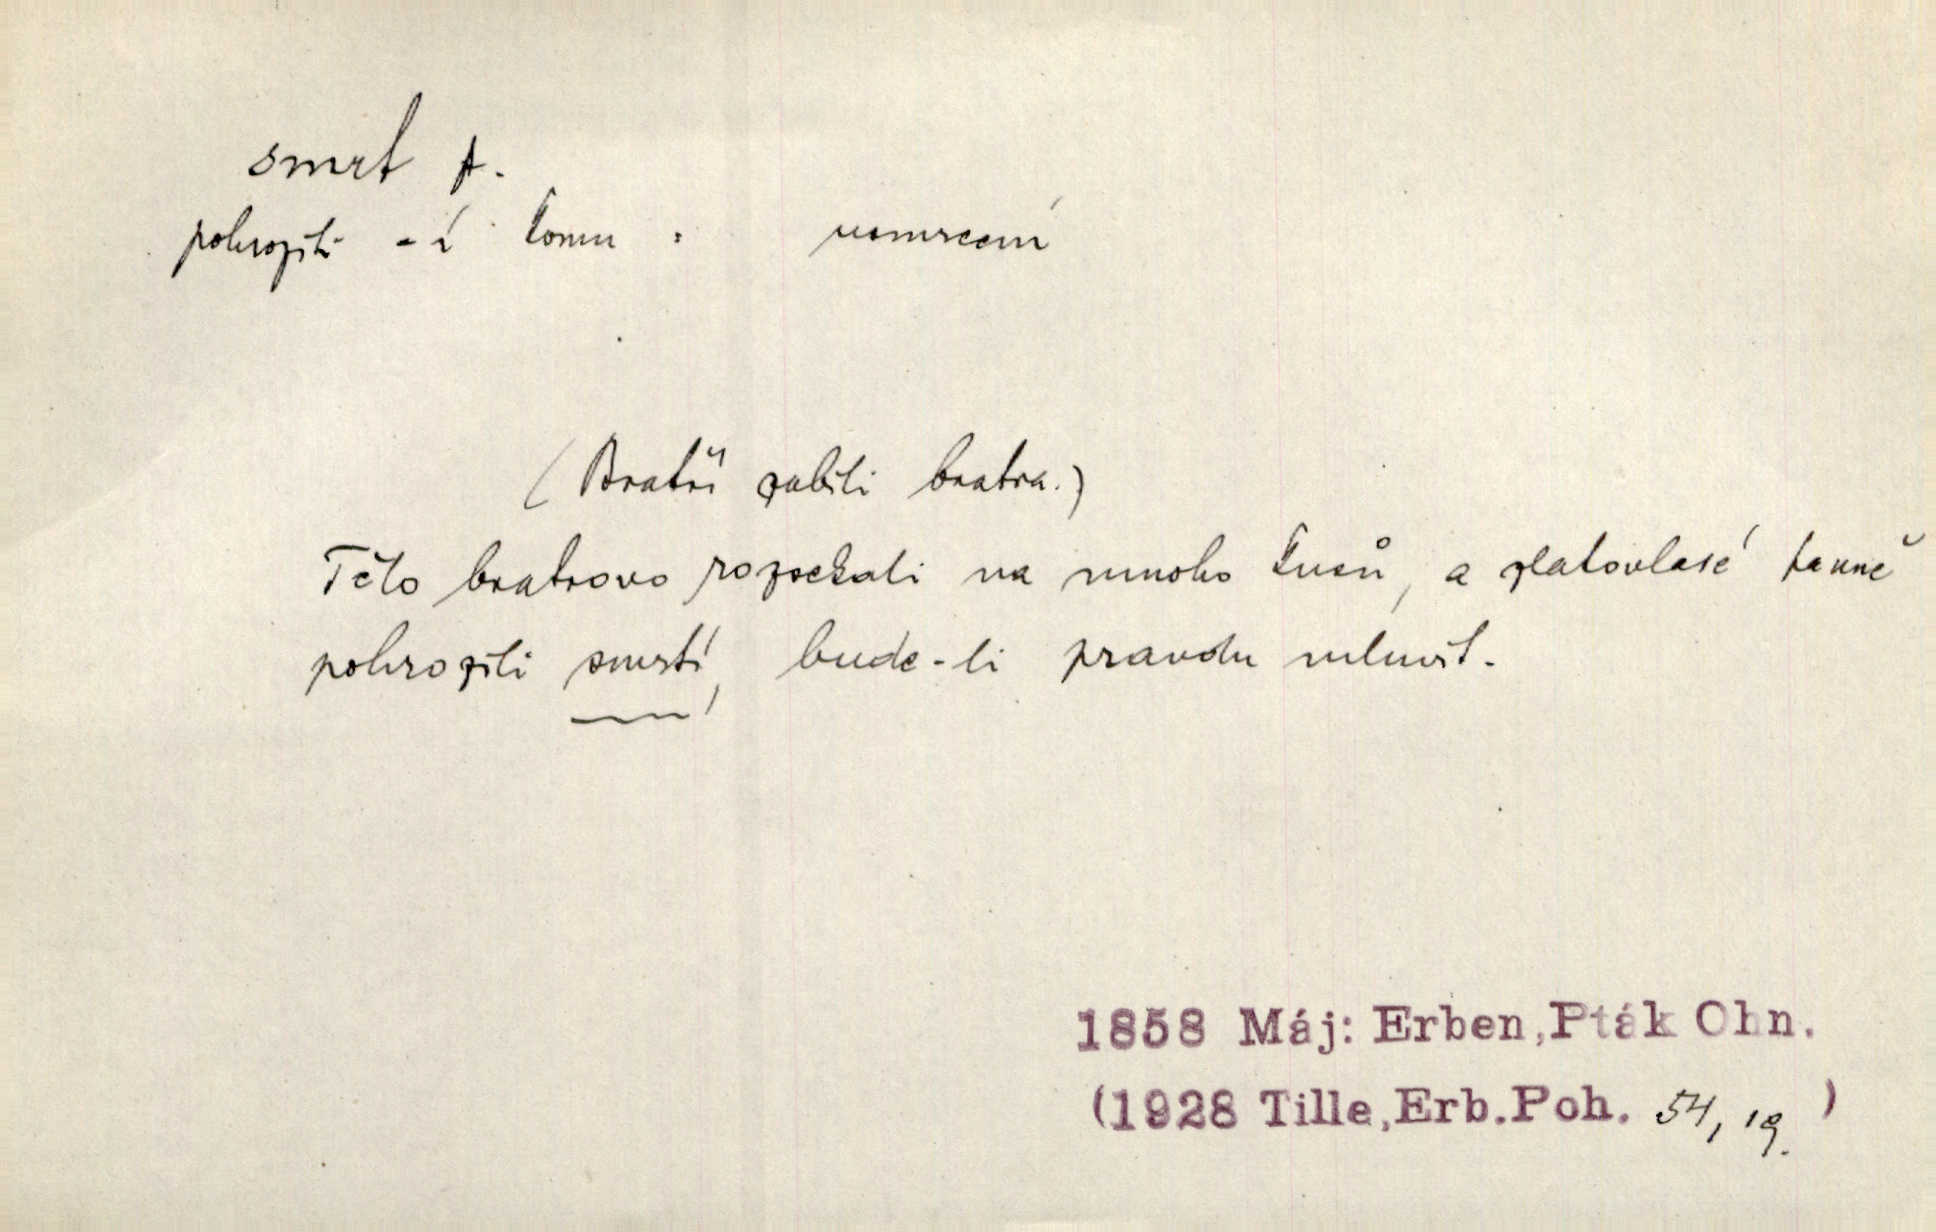 smrt f.
pohroziti -í komu : usmrcení
(Bratří zabili bratra.)
Tělo bratrovo rozsekali na mnoho kusů, a zlatovlasé panně
pohrozili smrtí, bude-li pravdu mluvit.
1858 Máj: Erben,Pták Ohn.
(1928 Tille,Erb.Poh. 54, 19. )